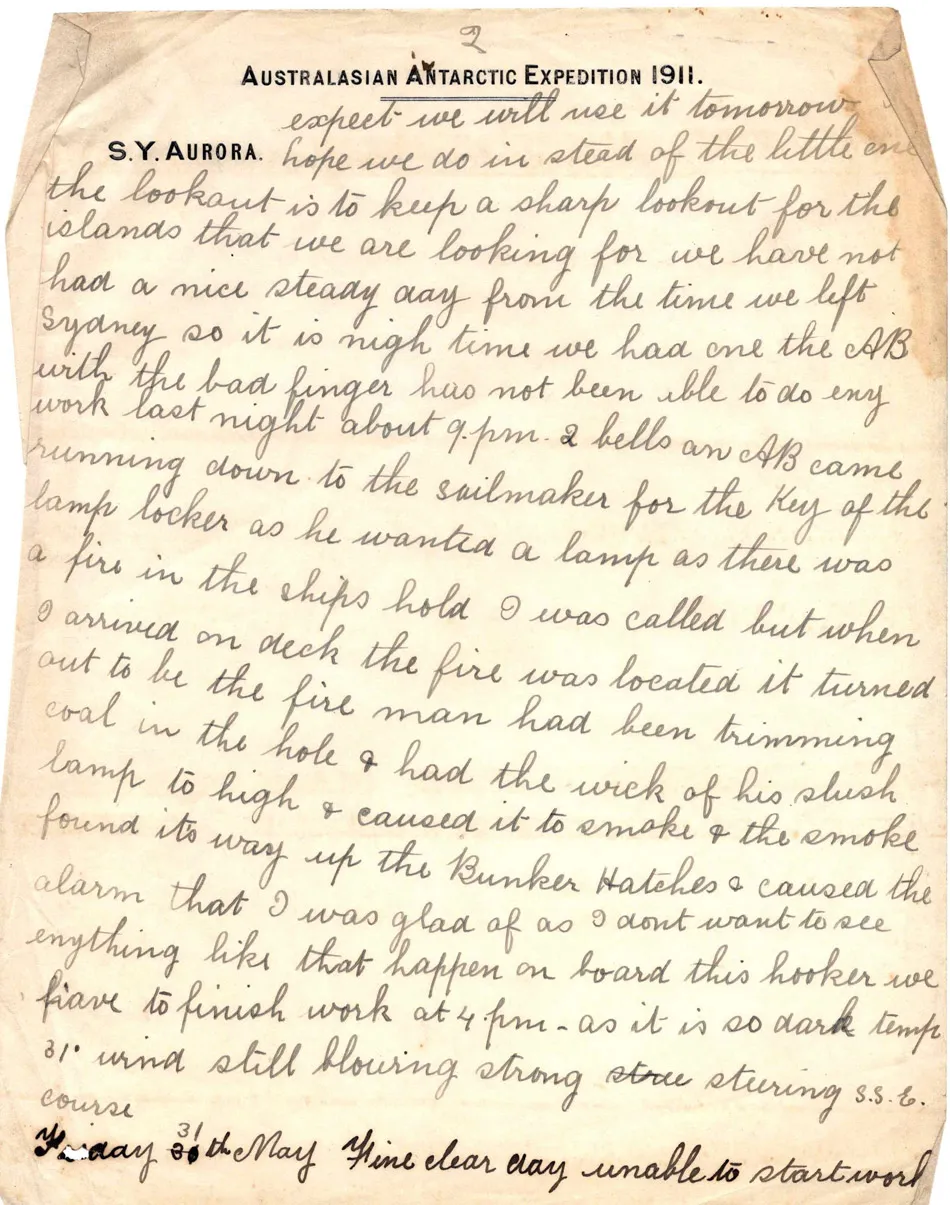 2
AUSTRALASIAN ANTARCTIC EXPEDITION 1911.
expect we will use it tomorrow
S.Y. AURORA. hope we do in stead of the little one
the lookout is to keep a sharp lookout for the
islands that we are looking for we have not
had a nice steady day from the time we left
Sydney so it is nigh time we had one the AB
with the bad finger has not been able to do eny
work last night about 9.pm. 2 bells an AB came
running down to the sailmaker for the Key of the
lamp locker as he wanted a lamp as there was
a fire in the ships hold I was called but when
I arrived on deck the fire was located it turned
out to be the fire man had been trimming
coal in the hole & had the wick of his slush
lamp to high & caused it to smoke & the smoke
found its way up the Bunker Hatches & caused the
alarm that I was glad of as I dont want to see
enything like that happen on board this hooker we
have to finish work at 4 pm - as it is so dark temp
31° wind still blowing strong stree steering S.S.E.
course
Friday 31 30th May Fine clear day unable to start work